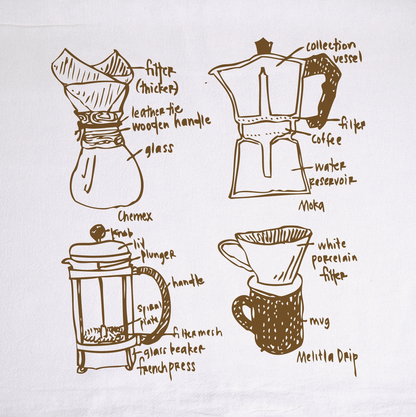 filter
(thicker)
leather tie
wooden handle
glass
Chemex
collection
vessel
filter
coffee
water
reservoir
Moka
knob
lid
plunger
handle
spiral
plate
filter mesh
glass beaker
french press
white
porcelain
filter
mug
Melitta Drip